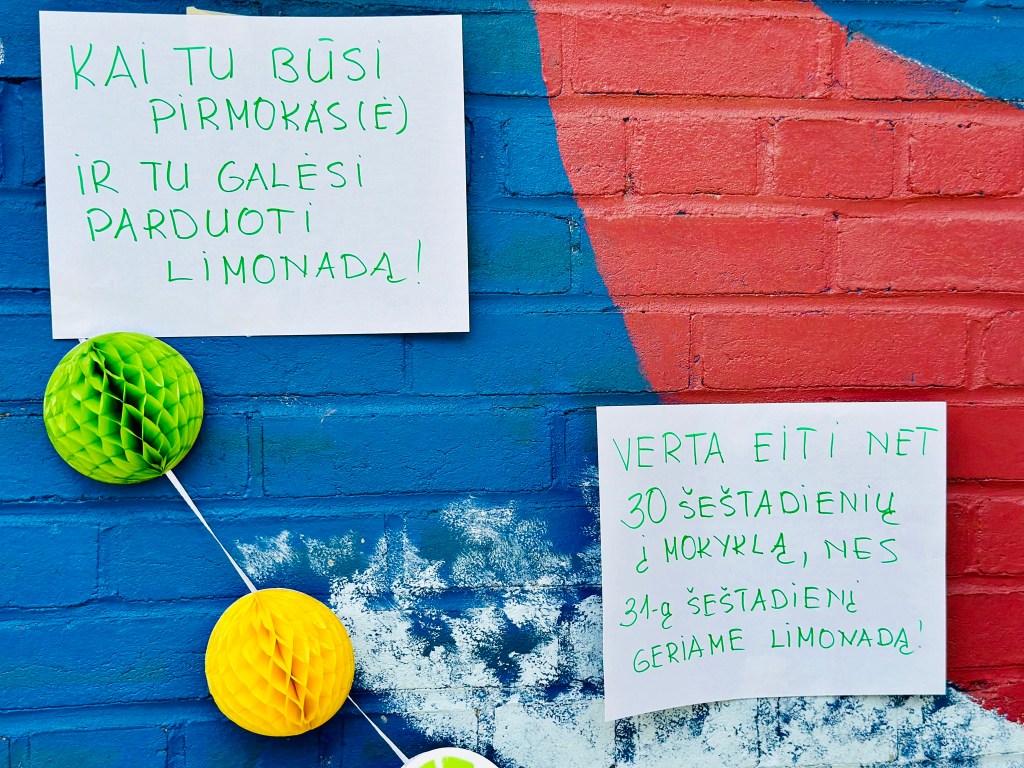 KAI TU BŪSI
PIRMOKAS(Ė)
IR TU GALĖSI
PARDUOTI
LIMONADĄ!
VERTA EITI NET
30 ŠEŠTADIENIŲ
Į MOKYKLĄ, NES
31-ą ŠEŠTADIENĮ
GERIAME LIMONADĄ!